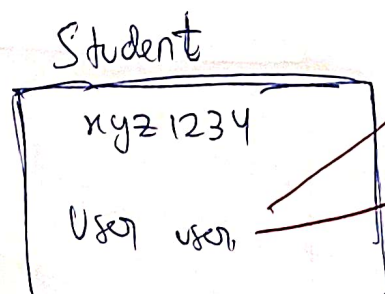 Student
xyz1234
User user